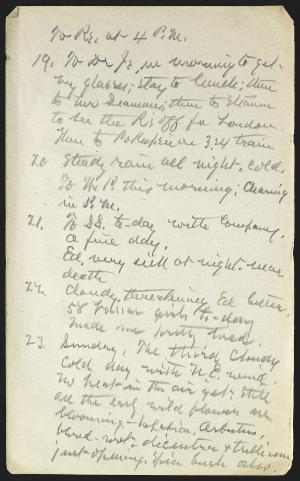 To Pg. at 4 P.M.
19. To Dr J. in morning to get
my glasses; stay to lunch; then
to Mrs Seaman; then to Steamer
to see the R's off for London
Then to Pokeepsie on 3.24 train
20 Steady rain all night. Cold.
To W. P. this morning; Clearing
in P.M.
21, To SS. to-day with Company.
A fine day.
Ed. very sick at night. near
death
22. Cloudy, threatening Ed better.
58 Vassar girls to-day
Made me pretty tired.
23. Sunday, The third cloudy
cold day with N.E. wind.
No heat in the air yet. Still
all the early wild flowers are
blooming,- hepatica, arbutus,
blood-root, dicentra & trillium
just opening. Spice bush also.